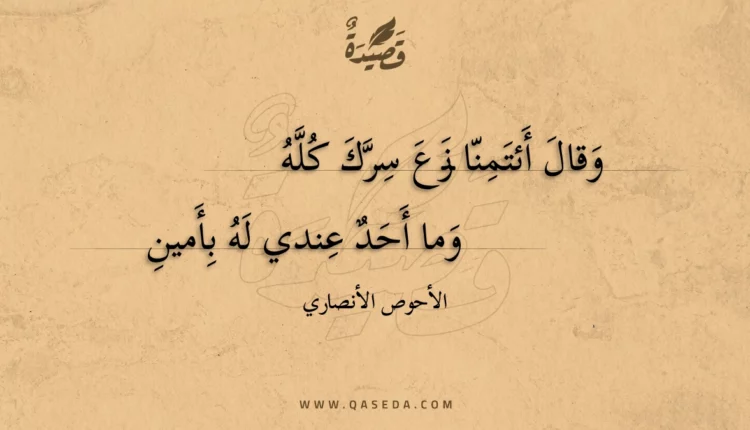 قَصِيدَةٌ
وَقالَ أَئتَمِنّا نَرعَ سِرَّكَ كُلَّهُ
وَما أَحَدٌ عِندي لَهُ بِأَمينِ
الأحوص الأنصاري
WWW.QASEDA.COM